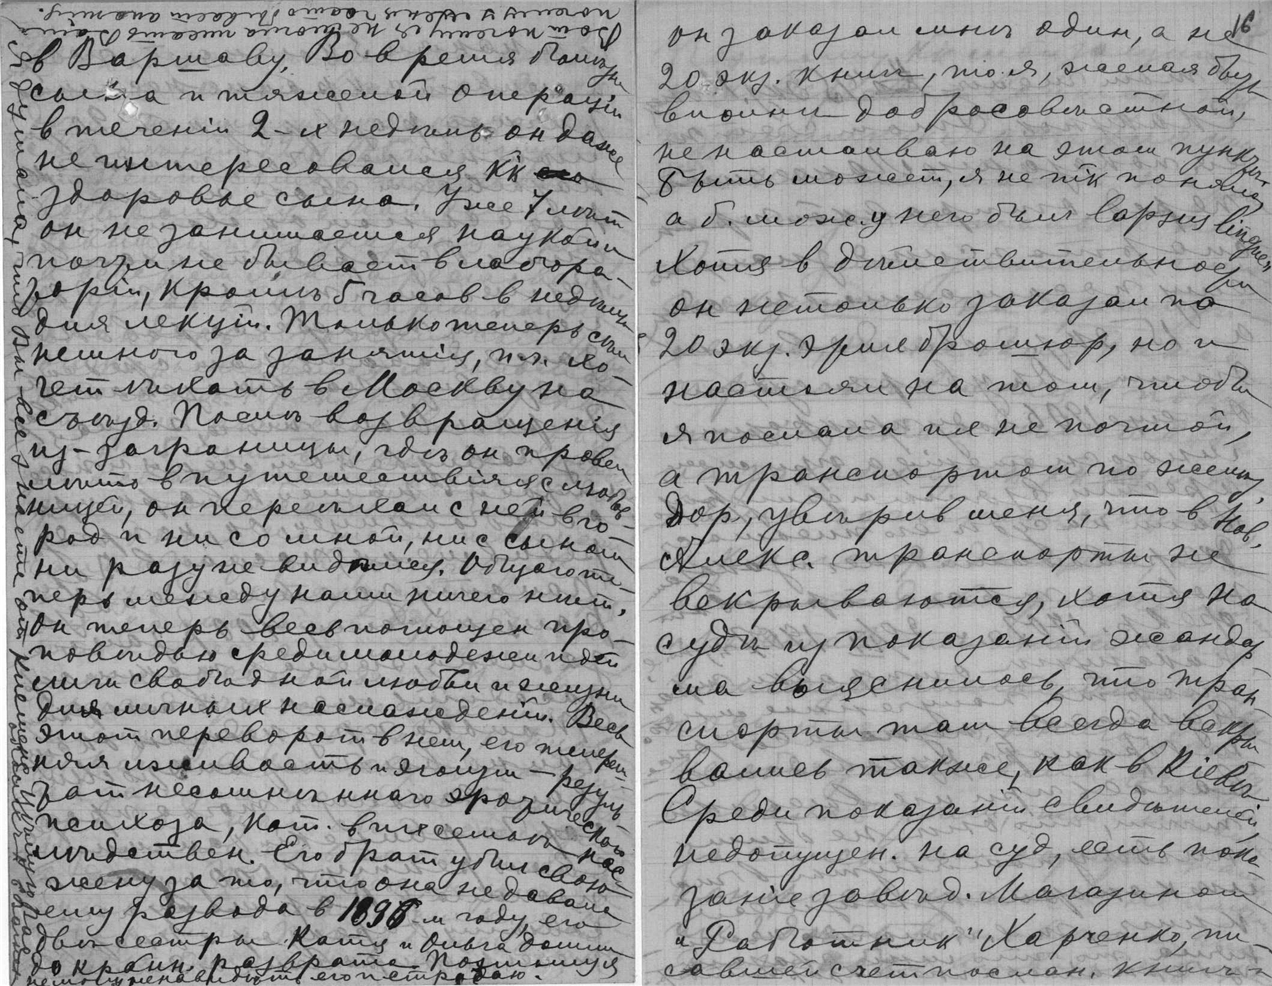 в Варшаву. Во время болезни
сына и тяжелой операціи
в теченіи 2-х недѣль он даже
не интересовался как
здоровье сына. Уже 7 лѣт
он не занимается наукой и
почти не бывает в лабора-
торіи, кромѣ 5 часов в недѣлю
для лекцій. Только теперь сѣл
немного за занятія, п.ч. хо-
чет ѣхать в Москву на
съѣзд. Послѣ возвращенія
из-заграницы, гдѣ он провел
лѣто в путешествіях с любов-
ницей, он переѣхал с ней в го-
род и ни со мной, ни с сыном
ни разу не видѣлся. Общаго те-
перь между нами ничего нѣт,
он теперь весь поглощен про-
повѣдью среди молодежи и дѣть
ми свободной любви и жизни
для личных наслажденій. Весь
этот переворот в нем, его теперь
няя лживость и эгоизм — резуль-
тат несомнѣннаго эротическаго
психоза, кот. в их семьѣ нас-
лѣдствен. Его брат убил свою
жену за то, что она не давала
ему развода в 1896-м году, его
двѣ сестры Катя и Ольга дошли
до крайн. разврата.
ненавидѣть его и страдаю.
Я думала, что Вы все знаете от
Вот почему я не могла писать Вам
почему у меня часто бывает
16
он заказал мнѣ один, а не
20 экз. книг, то я, желая быть
вполнѣ добросовѣстной,
не настаиваю на этом пунктѣ
Быть может, я не так поняла,
а б. може, у него был lapsus linguae
Хотя в дѣйствительности
он не только заказал по
20 экз. этих брошюр, но и
настоял на том, чтобы
я послала их не почтой,
а транспортом по желѣз.
дор., увѣрив меня, что в Нов.
Алекс. транспорты не
вскрываются, хотя на
судѣ из показаній жандар
ма выяснилось, что тран
спорты там всегда вскры
вались также, как в Кіевѣ.
Среди показаній свидѣтелей,
недопущен. на суд, есть пока-
заніе завѣд. Магазином
"Работник" Харченко, пи-
савшей счет послан. книгъ